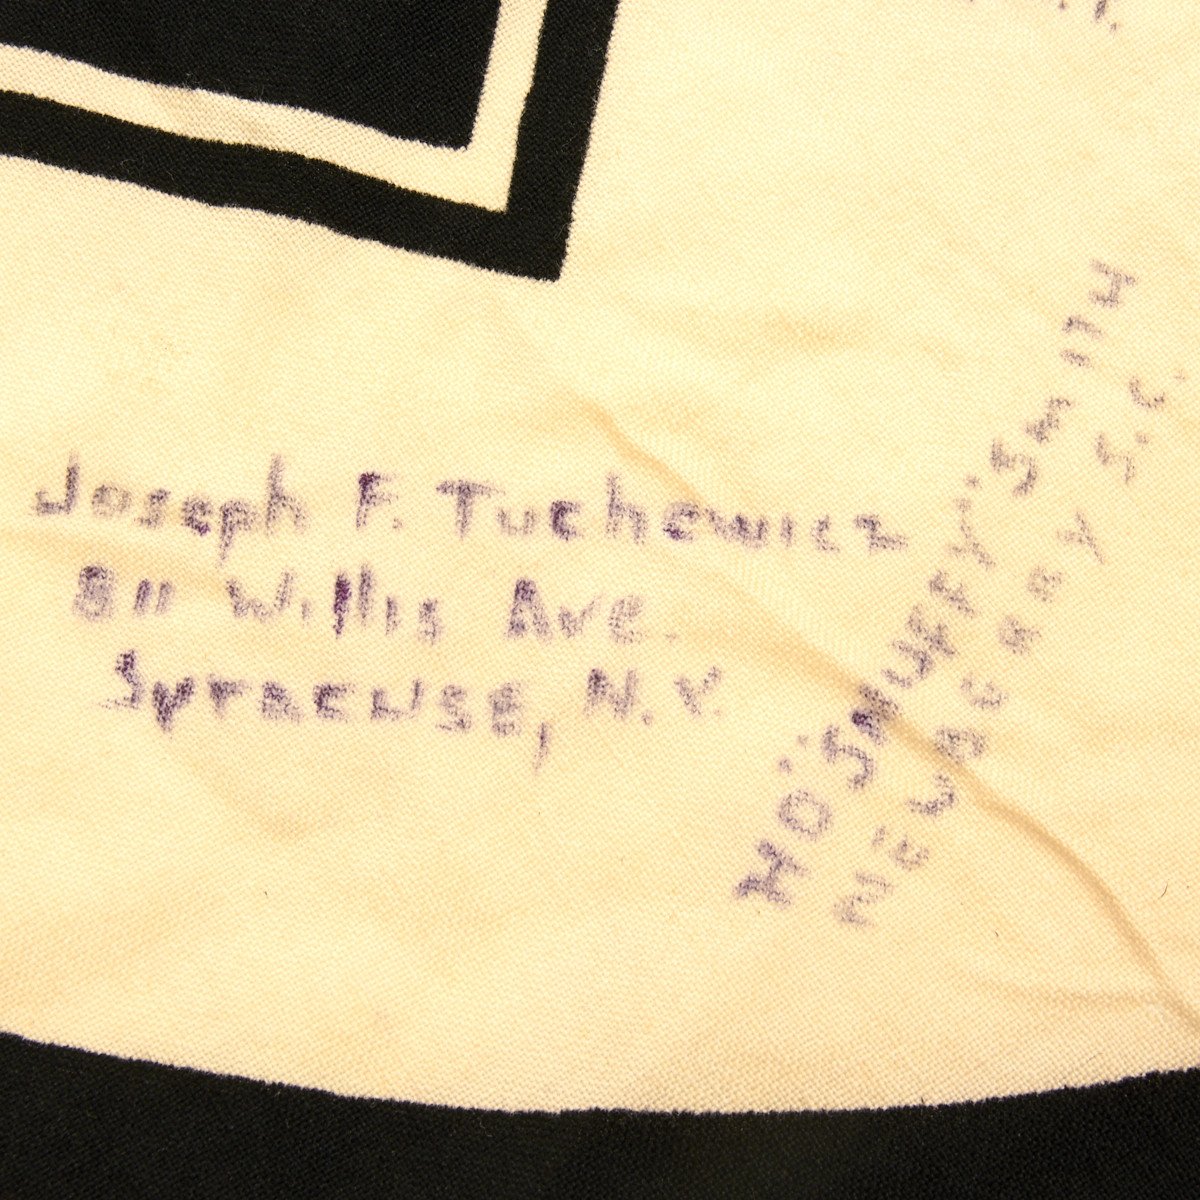 Joseph F. Tuchewicz
811 Willis Ave.
Syracuse, N.Y.
HO "SNUFFY" SMITH
NEWBERRY S.C.